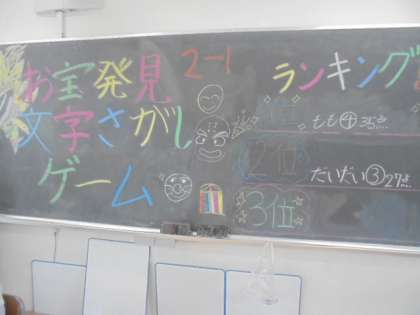 お宝発見
2-1
文字さがし
ゲーム
ランキング
1位
もも④35点
2位
だいだい③27点
3位